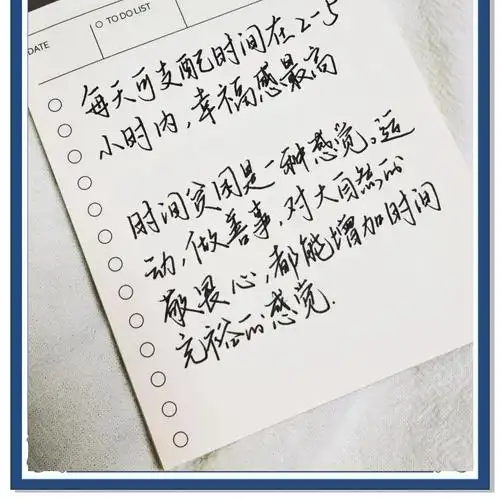 DATE
TO DO LIST
每天可支配时间在2-5
小时内,幸福感最高
时间贫困是一种感觉。运
动,做善事,对大自然的
敬畏心,都能增加时间
充裕的感觉.